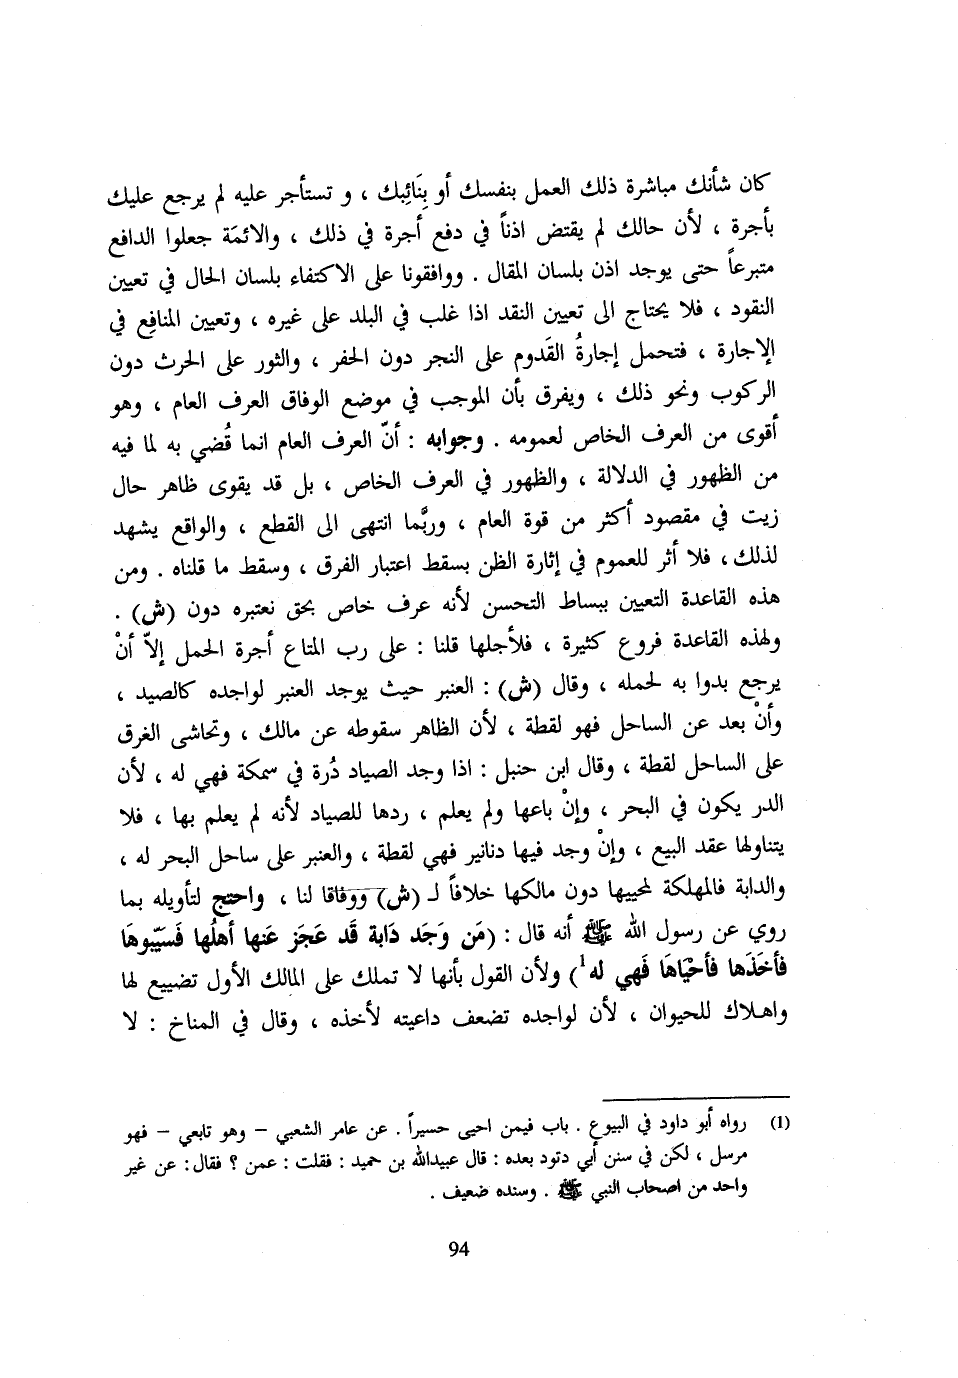 كان شأنك مباشرة ذلك العمل بنفسك أو بِنَائِبك ، و تستأجر عليه لم يرجع عليك
بأجرة ، لأن حالك لم يقتض اذناً في دفع أجرة في ذلك ، والائمَة جعلوا الدافع
متبرعاً حتى يوجد اذن بلسان المقال . ووافقونا على الاكتفاء بلسان الحال في تعيين
النقود ، فلا يحتاج الى تعيين النقد اذا غلب في البلد على غيره ، وتعيين المنافِع في
الإجارة ، فتحمل إجارةُ القَدوم على النجر دون الحفر ، والثور على الحرث دون
الركوب ونحو ذلك ، ويفرق بأن الموجب في موضع الوفاق العرف العام ، وهو
أقوى من العرف الخاص لعمومه . وجوابه : أنّ العرف العام انما قُضي به لما فيه
من الظهور في الدلالة ، والظهور في العرف الخاص ، بل قد يقوى ظاهر حال
زيت في مقصود أكثر من قوة العام ، وربَّما انتهى الى القطع ، والواقع يشهد
لذلك ، فلا أثر للعموم في إثارة الظن بسقط اعتبار الفرق ، وسقط ما قلناه . ومن
هذه القاعدة التعيين ببساط التحسن لأنه عرف خاص بحق نعتبره دون (ش) .
ولهذه القاعدة فروع كثيرة ، فلأجلها قلنا : على رب المتاع أجرة الحمل إلاّ أنْ
يرجع بدوا به لحمله ، وقال (ش) : العنبر حيث يوجد العنبر لواجده كالصيد ،
وأنْ بعد عن الساحل فهو لقطة ، لأن الظاهر سقوطه عن مالك ، وتحاشى الغرق
على الساحل لقطة ، وقال ابن حنبل : اذا وجد الصياد دُرة في سمكة فهي له ، لأن
الدر يكون في البحر ، وإنْ باعها ولم يعلم ، ردها للصياد لأنه لم يعلم بها ، فلا
يتناولها عقد البيع ، وإنْ وجد فيها دنانير فهي لقطة ، والعنبر على ساحل البحر له ،
والدابة فالمهلكة لمحييها دون مالكها خلافاً لـ (ش) ووفاقا لنا ، واحتج لتأويله بما
روي عن رسول الله ﷺ أنه قال : (مَن وَجَد دَابة قَد عَجَز عَنها أهلُها فَسَيّبوهَا
فأخَذَها فأحْيَاهَا فَهي له1) ولأن القول بأنها لا تملك على المالك الأول تضييع لها
واهلاك للحيوان ، لأن لواجده تضعف داعيته لأخذه ، وقال في المناخ : لا
(1) رواه أبو داود في البيوع . باب فيمن احيى حسيراً . عن عامر الشعبي – وهو تابعي – فهو
مرسل ، لكن في سنن أبي دتود بعده : قال عبيدالله بن حميد : فقلت : عمن ؟ فقال : عن غير
واحد من اصحاب النبي ﷺ . وسنده ضعيف .
94